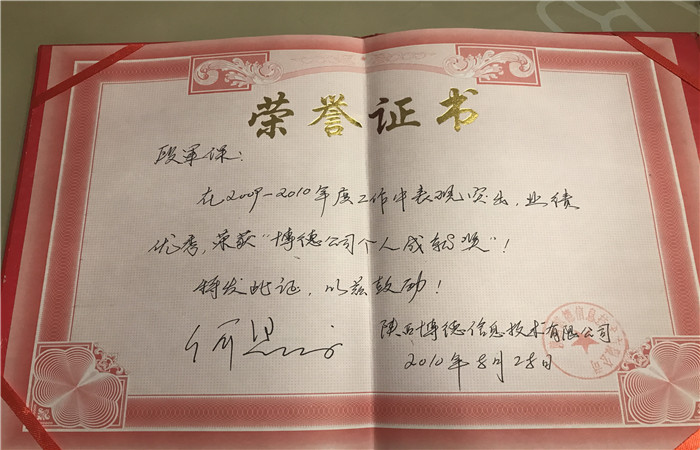 荣誉证书
段军保:
在2009-2010年度工作中表现突出,业绩
优秀,荣获"博德公司个人成就奖"!
特发此证,以兹鼓励!
陕西博德信息技术有限公司
2010年8月28日